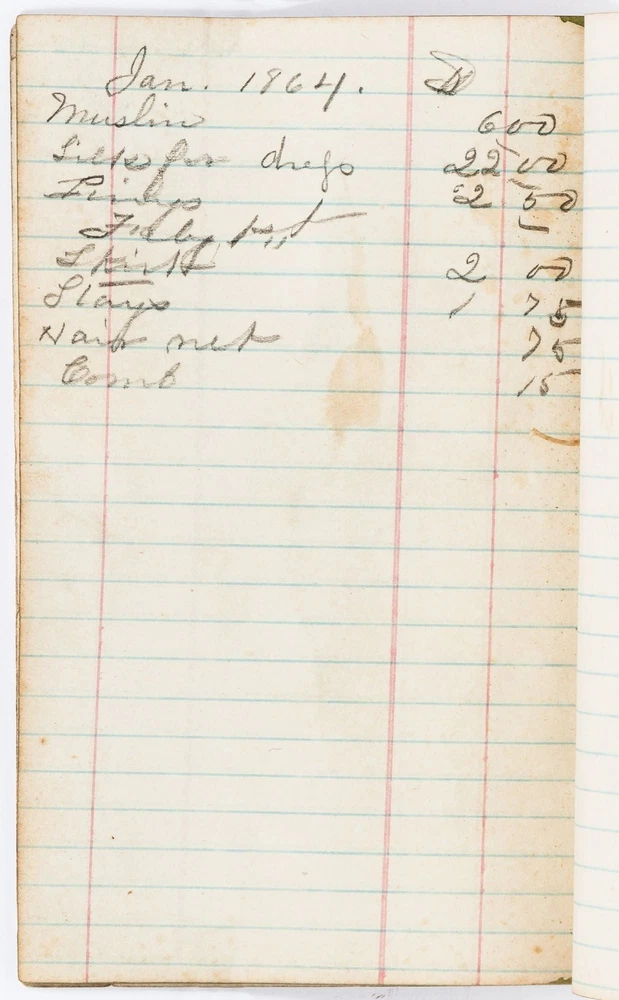 Jan. 1864.
Muslin 6 00
Silk for dress 22 00
2 50
Feby 1st
Skirt 2 00
Stays 1 75
Hair net 75
Comb 15